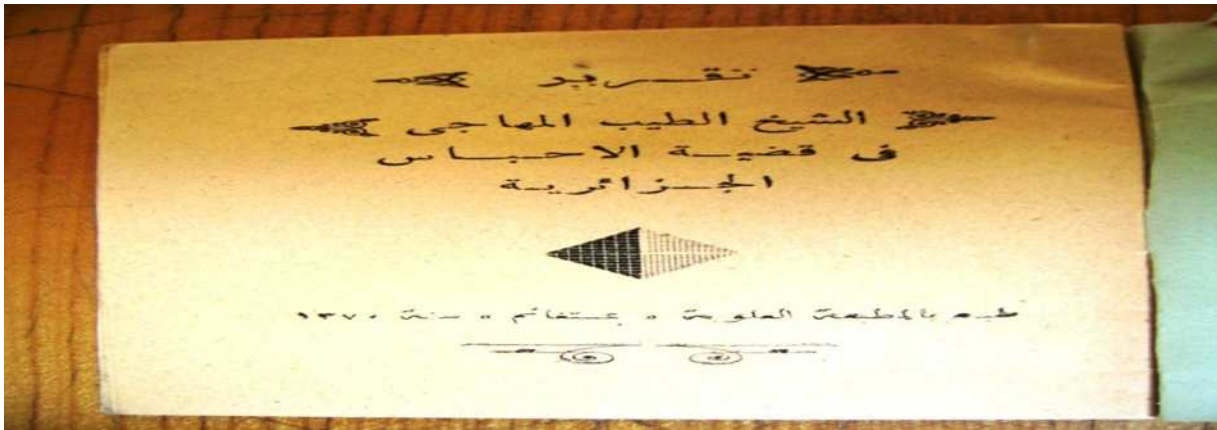 تقرير
الشيخ الطيب المهاجى
فى قضية الاحباس
الجزائرية
طبع بالمطبعة العلوية ه بمستغانم ه سنة ١٣٧٠